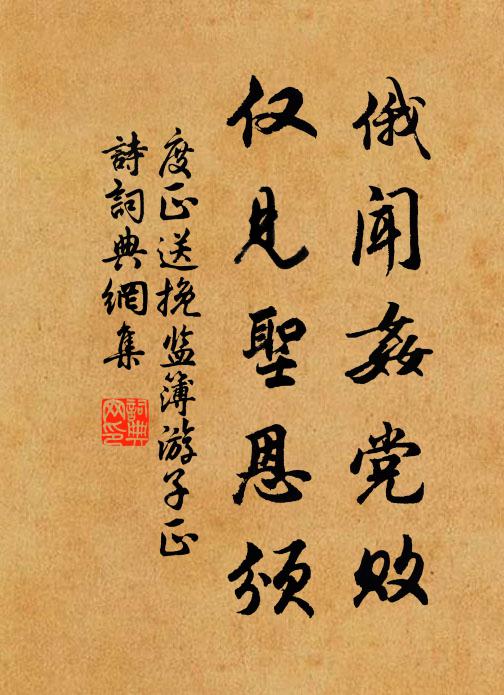 俄闻姦党败
仅见聖恩颁
度正送挽监簿游子正
詩詞典網集
詞典网印